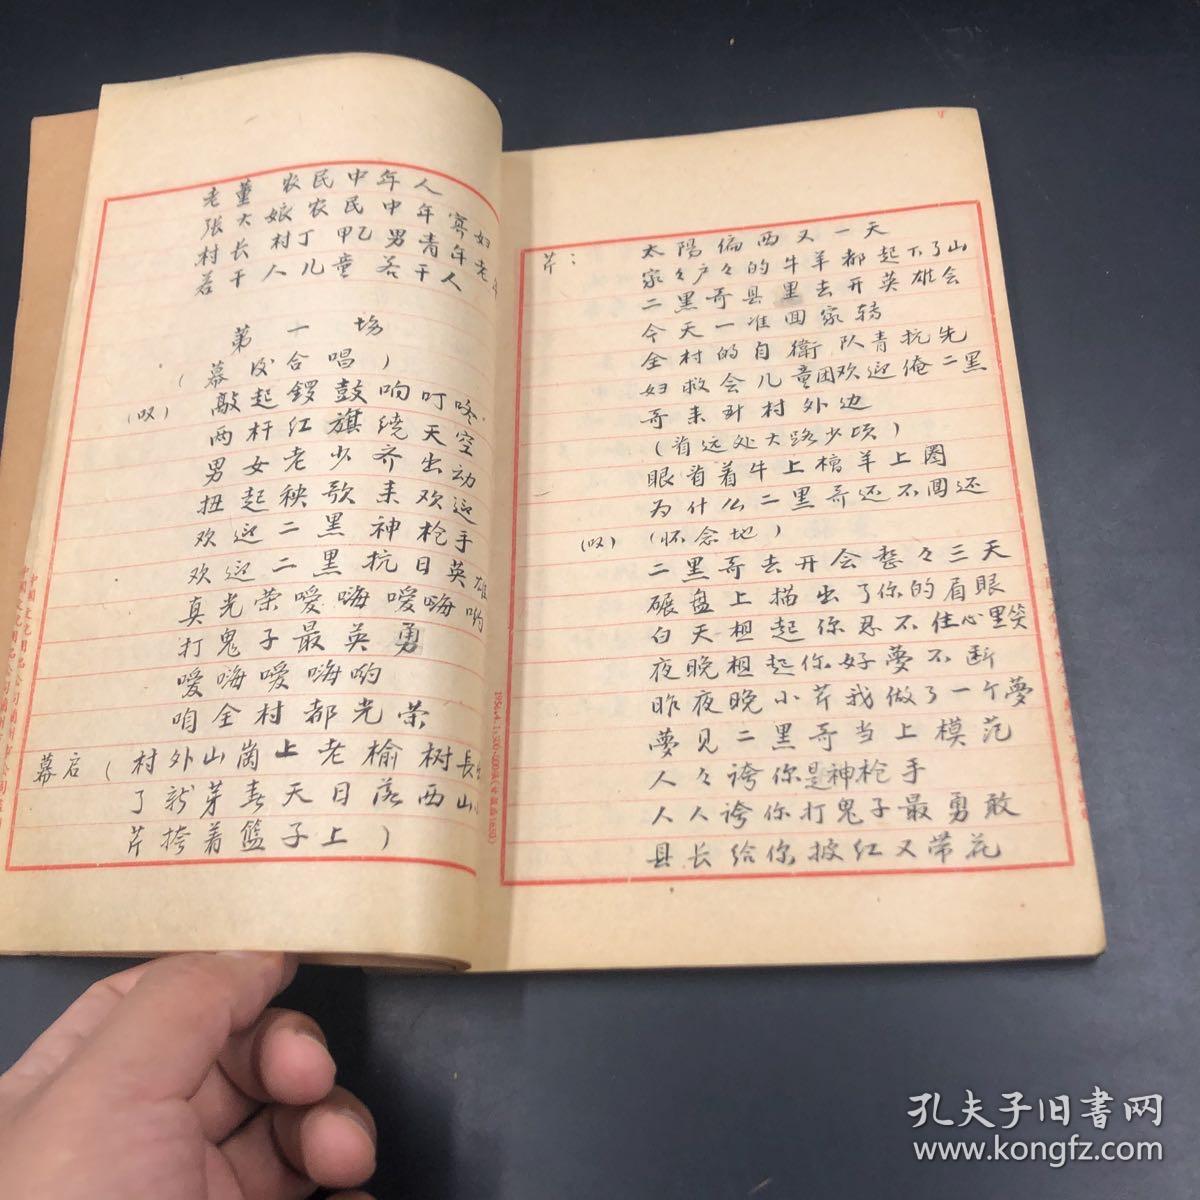 老董 农民中年人
张大娘农民 中年寡妇
村长 村丁 甲乙 男青年老年
若干人儿童 若干人
第一场
(幕后合唱)
(叹) 敲起锣鼓响叮咚
两杆红旗绕天空
男女老少齐出动
扭起秧歌来欢迎
欢迎二黑神枪手
欢迎二黑抗日英雄
真光荣嗳嗨嗳嗨哟
打鬼子最英勇
嗳嗨嗳嗨哟
咱全村都光荣
幕启(村外山岗上老榆树長出
了新芽春天日落西山
芹挎着篮子上)
芹: 太陽偏西又一天
家々户々的牛羊都起下了山
二黑哥县里去开英雄会
今天一准回家转
全村的自衛队青抗先
妇救会儿童团欢迎俺二黑
哥来到村外边
(看远处大路少顷)
眼看着牛上槽羊上圈
为什么二黑哥还不回还
(叹) (怀念地)
二黑哥去开会整々三天
碾盘上描出了你的眉眼
白天想起你忍不住心里笑
夜晚想起你好夢不断
昨夜晚小芹我做了一个夢
夢见二黑哥当上模范
人々誇你是神枪手
人人誇你打鬼子最勇敢
县长给你披红又带花
孔夫子旧書网
www.kongfz.com